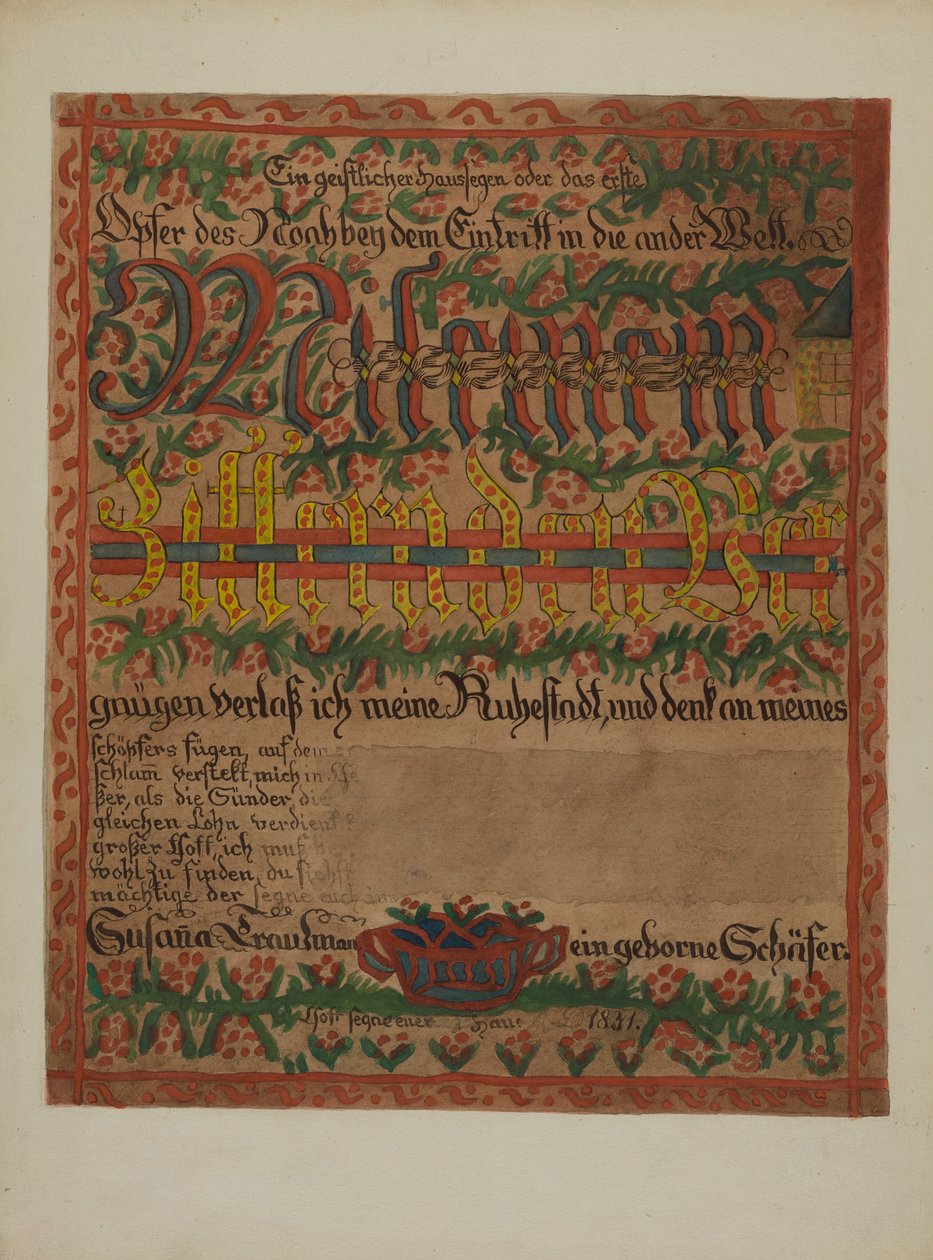 Ein geistlicher Haussegen oder das erste
Opfer des Noah bey dem Eintritt in die ander Welt.
Mit einem
Zitternden Ver
gnügen verlaß ich meine Ruhestadt, und denk an meines
schöpfers fügen, auf dem
schlam̄ verstekt, mich in
ßer, als die Sünder, die
gleichen Lohn verdient
großer Gott, ich muß
wohl zu finden, du siehst
mächtige der segne euch im
Susan̄a Trautman ein geborne Schäfer.
Gott segne euer Haus AD 1831.